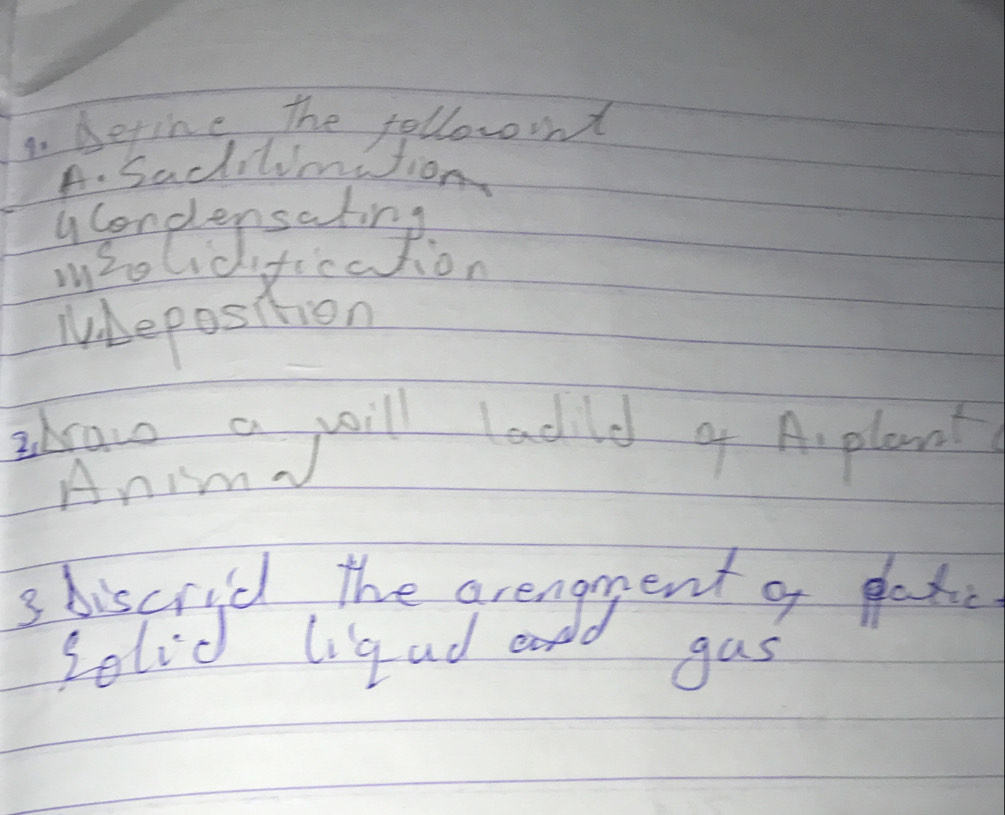 1. Define the followint
A. Sacdilimation
ii Condensating
iii Solidification
IV. Deposition
2. Draw a will ladild of A. plant
Animal
3 Discrid the arengment of patic
Solid liqud and gas